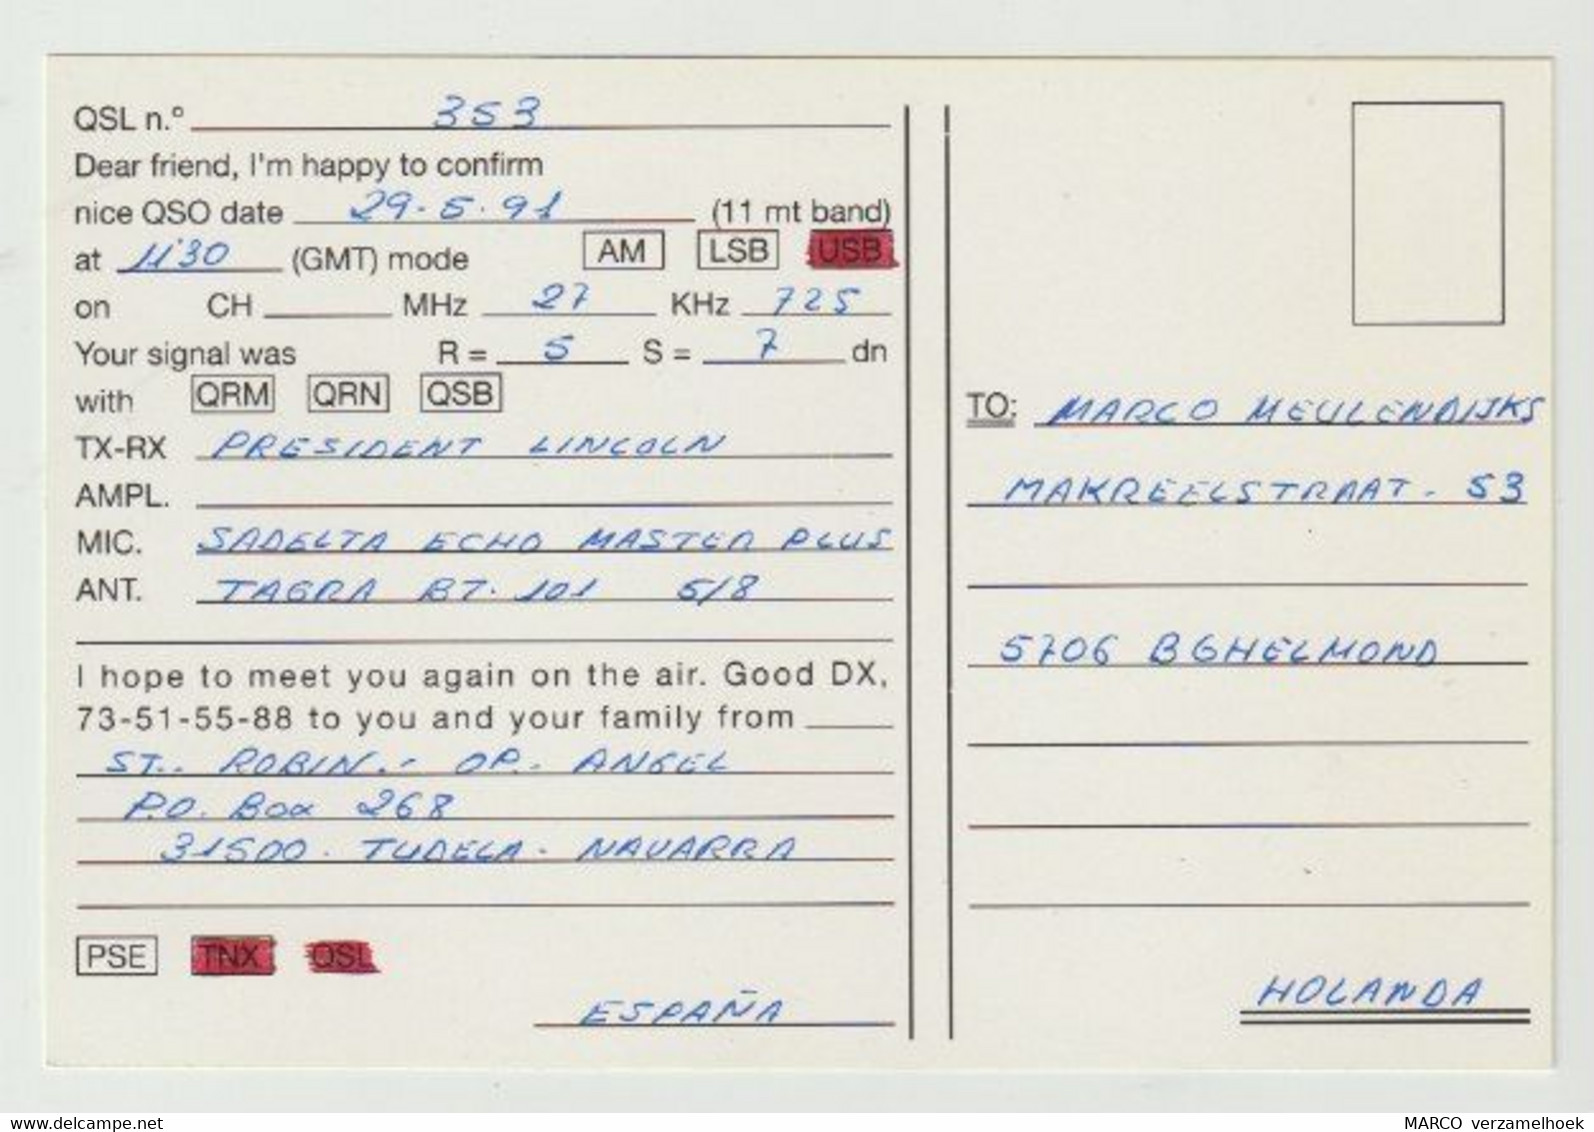 QSL n.º 353
Dear friend, I'm happy to confirm
nice QSO date 29-5-91 (11 mt band)
at 11'30 (GMT) mode AM LSB USB
on CH MHz 27 KHz 725
Your signal was R = 5 S = 7 dn
with QRM QRN QSB
TX-RX PRESIDENT LINCOLN
AMPL.
MIC. SADELTA ECHO MASTER PLUS
ANT. TAGRA BT-101 5/8
I hope to meet you again on the air. Good DX,
73-51-55-88 to you and your family from
ST.. ROBIN.- OP.- ANGEL
P.O. Box 268
31500. TUDELA - NAVARRA
PSE TNX QSL
ESPAÑA
TO: MARCO MEULENDIJKS
MAKREELSTRAAT - 53
5706 BGHELMOND
HOLANDA
MARCO verzamelhoek
www.delcampe.net